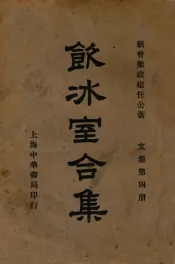 新會梁啟超任公著
文集第四册
飲冰室合集
上海中華書局印行